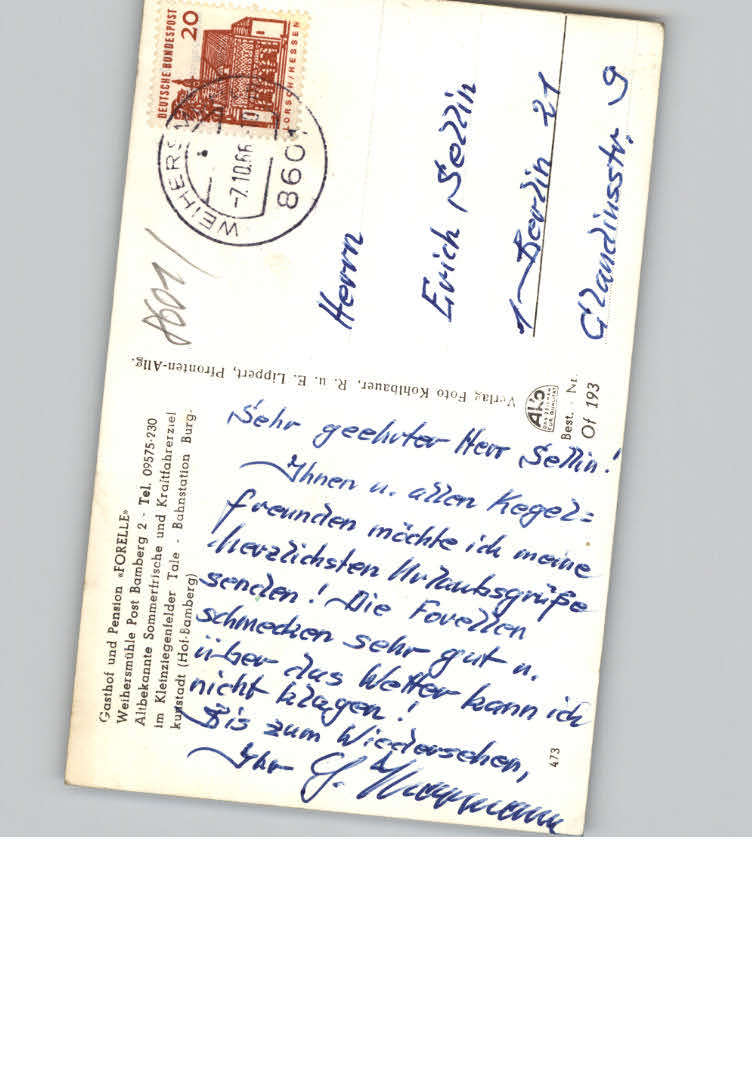 Gasthof und Pension «FORELLE»
Weihersmühle Post Bamberg 2 - Tel. 09575-230
Altbekannte Sommerfrische und Kraftfahrerziel
im Kleinziegenfelder Tale - Bahnstation Burg-
kunstadt (Hof-Bamberg)
Sehr geehrter Herr Sellin!
Ihnen u. allen Kegel=
freunden möchte ich meine
herzlichsten Urlaubsgrüße
senden! Die Forellen
schmecken sehr gut u.
über das Wetter kann ich
nicht klagen!
Bis zum Wiedersehen,
Ihr
473
Verlag Foto Kohlbauer, R. u. E. Lippert, Pfronten-Allg.
AKO
DAS ZEICHEN
FÜR QUALITÄT
Best. - Nr.
Of 193
DEUTSCHE BUNDESPOST
20
LORSCH/HESSEN
8601
-7.10.66
8601
Herrn
Erich Sellin
1 Berlin 21
Claudiusstr. 9